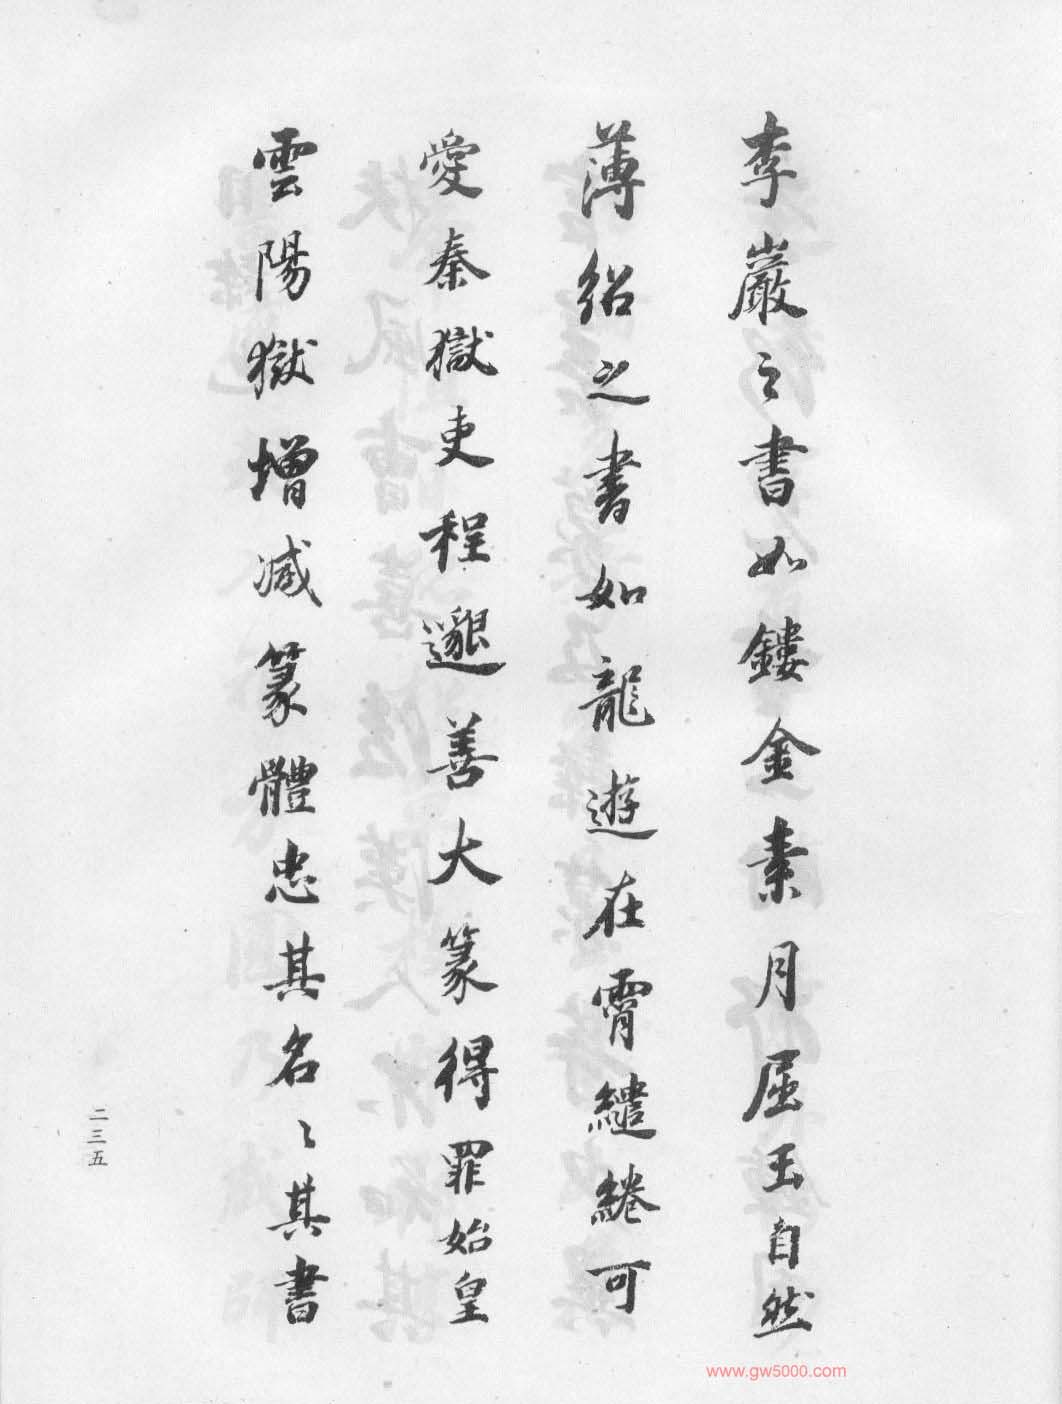 李巖之書如鏤金素月屈玉自然
薄紹之書如龍遊在霄繾綣可
愛秦獄吏程邈善大篆得罪始皇
雲陽獄增减篆體忠其名〻其書
二三五
www.gw5000.com